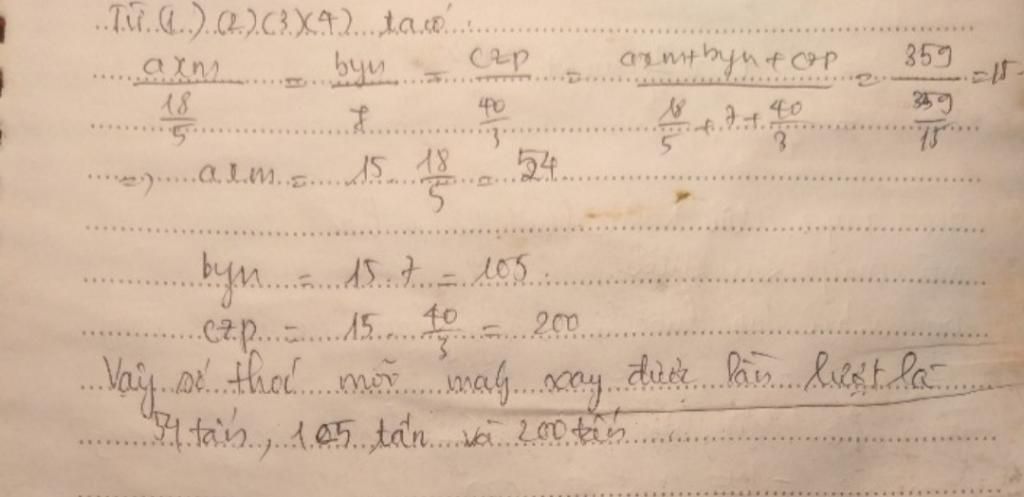 Từ (1) (2) (3) (4) ta có:
axm/(18/5) = byn/7 = czp/(40/3) = (axm+byn+czp)/(18/5+7+40/3) = 359/(359/15) = 15
=> axm = 15 . 18/5 = 54
byn = 15.7 = 105.
czp = 15 . 40/3 = 200
Vậy số thóc mỗi máy xay được lần lượt là
54 tấn, 105 tấn và 200 tấn